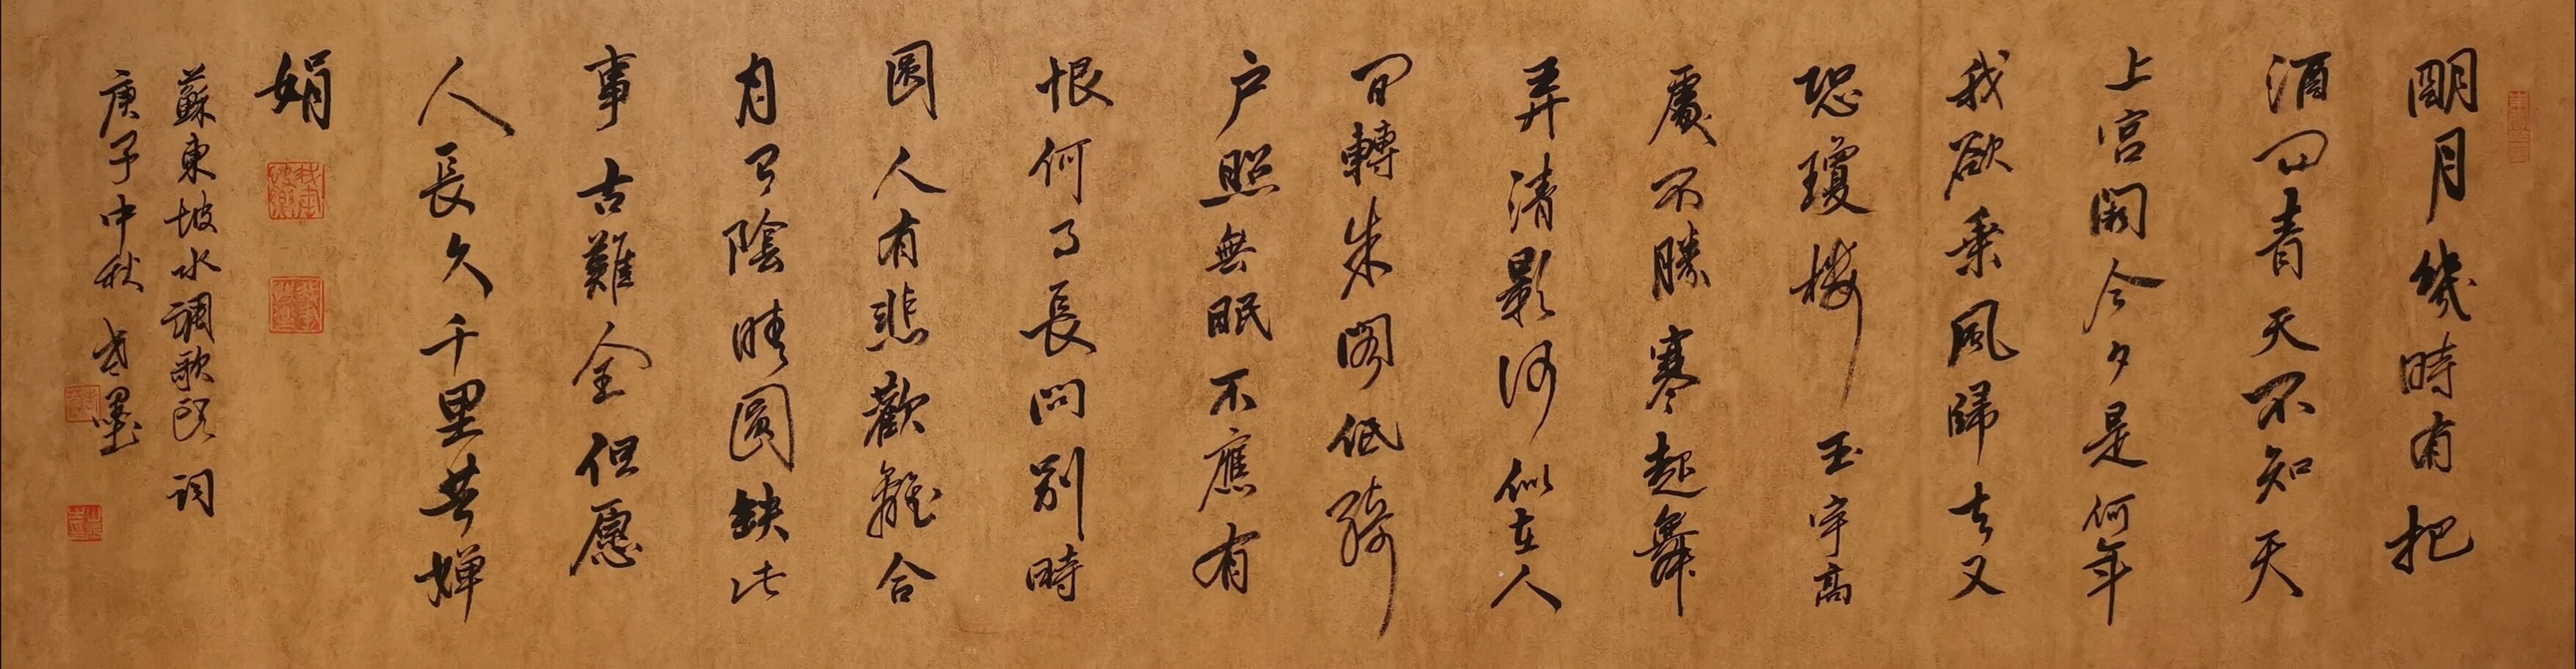 明月幾時有把
酒问青天不知天
上宫闕今夕是何年
我欲乘風歸去又
恐瓊楼玉宇高
處不勝寒起舞
弄清影何似在人
间轉朱阁低绮
户照無眠不應有
恨何事長问别時
圆人有悲歡離合
月有陰晴圆缺此
事古難全但愿
人長久千里共婵
娟
蘇東坡水调歌頭词
庚子中秋 墨